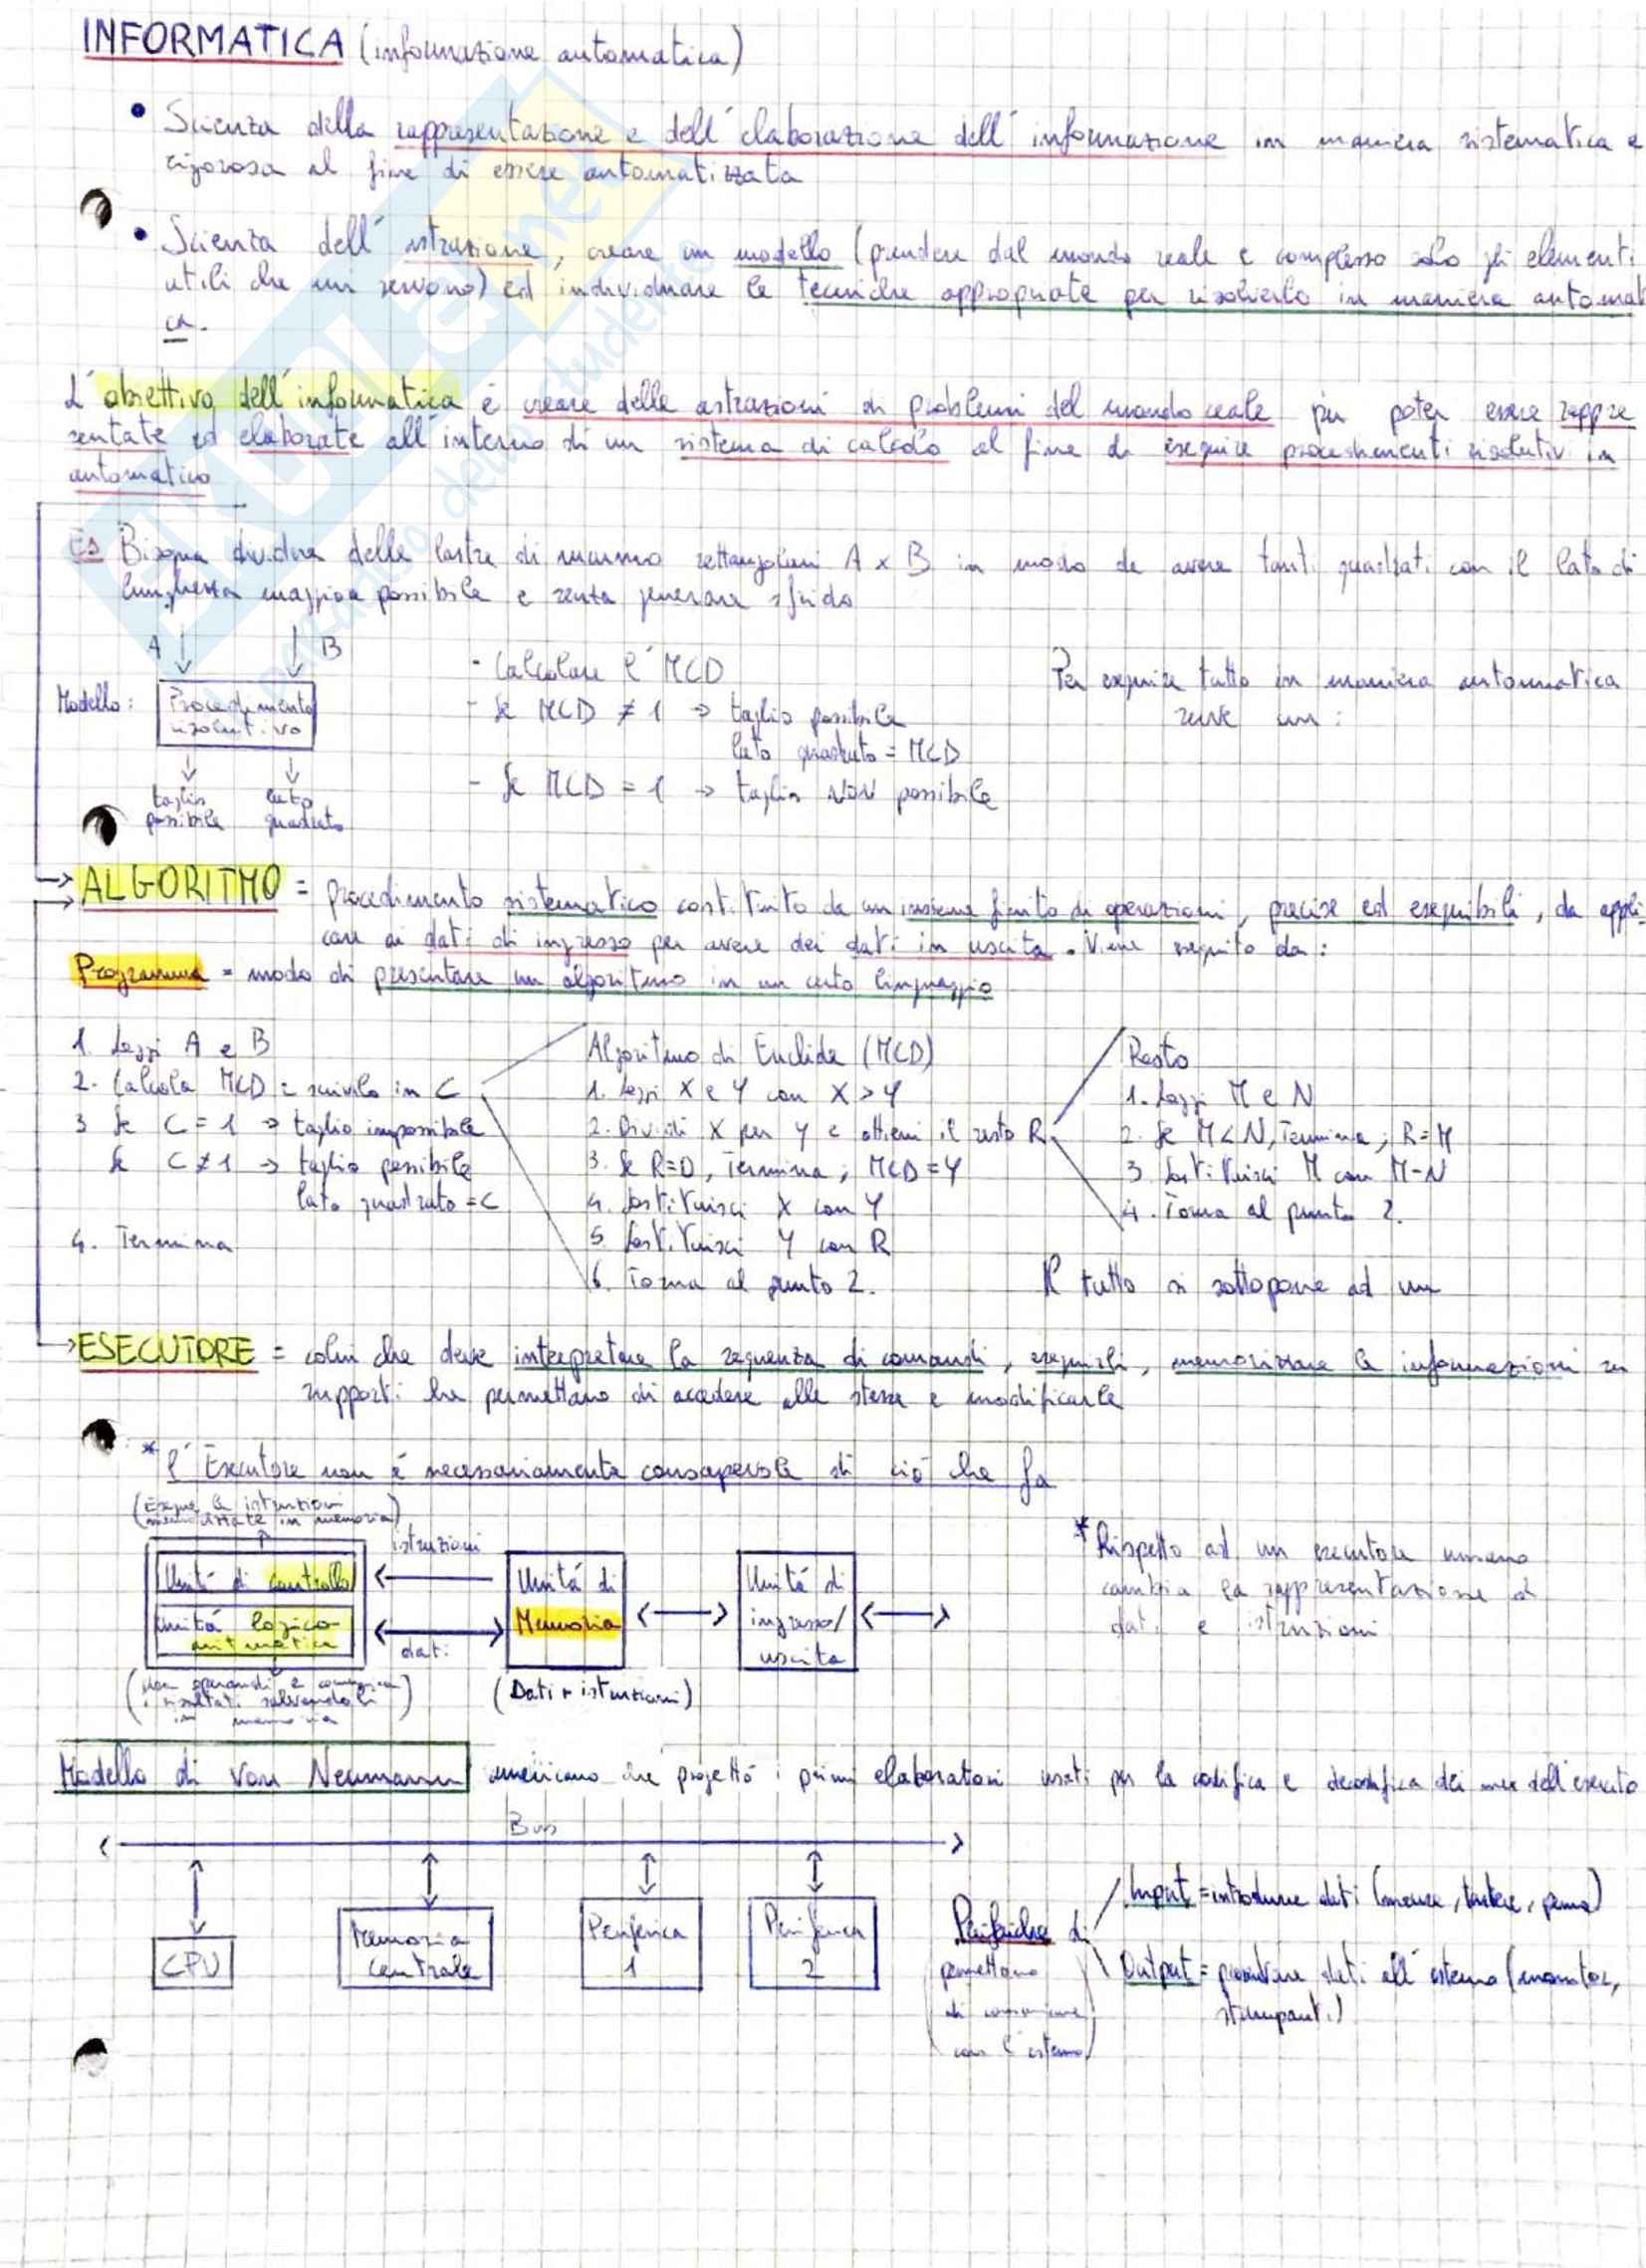 INFORMATICA (informazione automatica)
• Scienza della rappresentazione e dell'elaborazione dell'informazione in maniera sistematica e
rigorosa al fine di essere automatizzata
• Scienza dell'astrazione, creare un modello (prendere dal mondo reale e complesso solo gli elementi
utili che mi servono) ed individuare le tecniche appropriate per risolverlo in maniera automati
ca.
L'obiettivo dell'informatica è creare delle astrazioni di problemi del mondo reale per poter essere rappre
sentate ed elaborate all'interno di un sistema di calcolo al fine di eseguire procedimenti risolutivi in
automatico
Es Bisogna dividere delle lastre di marmo rettangolari A x B in modo da avere tanti quadrati con il lato di
lunghezza maggiore possibile e senza generare sfrido
A B
Modello: Procedimento
risolutivo
taglio
possibile
lato
quadrato
- Calcolare l'MCD
- Se MCD ≠ 1 → taglio possibile
lato quadrato = MCD
- Se MCD = 1 → taglio NON possibile
Per eseguire tutto in maniera automatica
serve un:
→ ALGORITMO = procedimento sistematico costituito da un insieme finito di operazioni, precise ed eseguibili, da appli-
care ai dati di ingresso per avere dei dati in uscita. Viene eseguito da:
Programma = modo di presentare un algoritmo in un certo linguaggio
1. Leggi A e B
2. Calcola MCD e scrivilo in C
3 Se C = 1 → taglio impossibile
Se C ≠ 1 → taglio possibile
lato quadrato = C
4. Termina
Algoritmo di Euclide (MCD)
1. Leggi X e Y con X > Y
2. Dividi X per Y e ottieni il resto R
3. Se R=0, Termina; MCD = Y
4. Sostituisci X con Y
5. Sostituisci Y con R
6. Torna al punto 2.
Resto
1. Leggi M e N
2. Se M < N, Termina; R = M
3. Sostituisci M con M-N
4. Torna al punto 2.
Il tutto si sottopone ad un
→ ESECUTORE = colui che deve interpretare la sequenza di comandi, eseguirli, memorizzare le informazioni su
supporti che permettano di accedere alle stesse e modificarle
* l'Esecutore non è necessariamente consapevole di ciò che fa
(Esegue le istruzioni
memorizzate in memoria)
Unità di controllo
Unità logico-
aritmetica
istruzioni
dati
Unità di
Memoria
(Dati + istruzioni)
Unità di
ingresso/
uscita
operandi e comunica
i risultati salvandoli
in memoria
* Rispetto ad un esecutore umano
cambia la rappresentazione di
dati e istruzioni
Modello di Von Neumann americano che progettò i primi elaboratori usati per la codifica e decodifica dei mex dell'esercito
Bus
CPU
Memoria
centrale
Periferica
1
Periferica
2
Periferiche di
permettono
di comunicare
con l'esterno
Input = introdurre dati (mouse, tastiere, penna)
Output = presentare dati all'esterno (monitor,
stampanti)